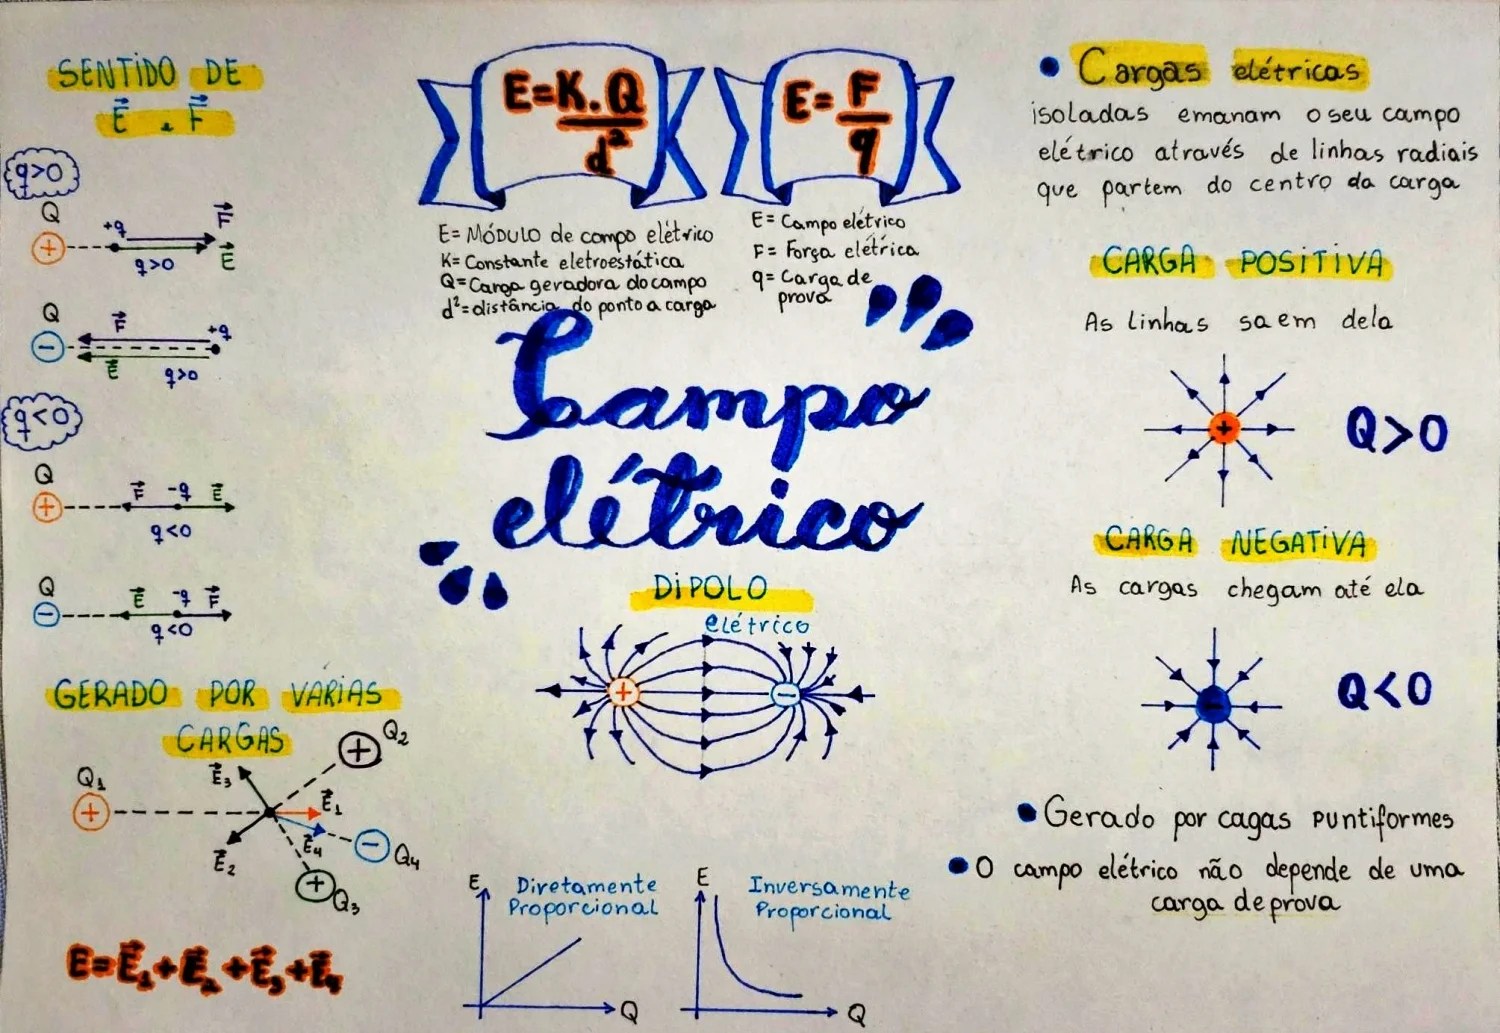 SENTIDO DE
E e F
q>0
Q
+q
F
+
q>0
E
Q
F
+q
-
E
q>0
q<0
Q
F -q E
+
q<0
Q
E -q F
-
q<0
GERADO POR VÁRIAS
CARGAS
Q2
+
E3
Q1
+
E1
E4
- Q4
E2
+
Q3
E=E1+E2+E3+E4
E=K.Q
d²
E= Módulo de campo elétrico
K= Constante eletroestática
Q= Carga geradora do campo
d²= distância do ponto a carga
E=F
q
E= Campo elétrico
F= Força elétrica
q= Carga de
prova
Campo
elétrico
DIPOLO
elétrico
+ -
E
Diretamente
Proporcional
Q
E
Inversamente
Proporcional
Q
• Cargas elétricas
isoladas emanam o seu campo
elétrico através de linhas radiais
que partem do centro da carga
CARGA POSITIVA
As linhas saem dela
+
Q>0
CARGA NEGATIVA
As cargas chegam até ela
-
Q<0
• Gerado por cagas puntiformes
• O campo elétrico não depende de uma
carga de prova